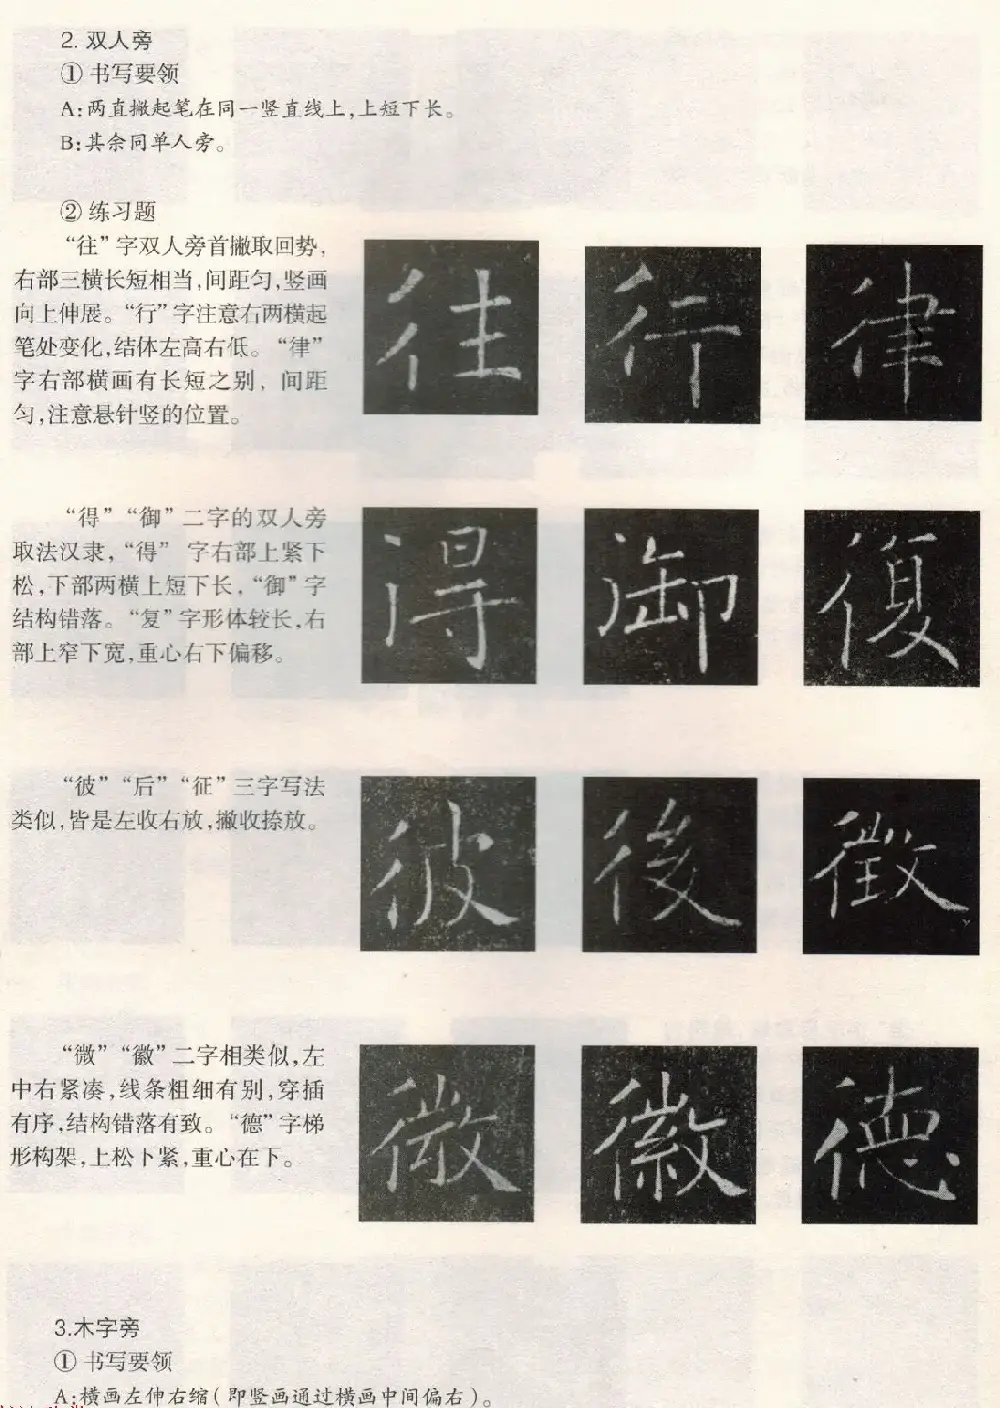 2. 双人旁
① 书写要领
A:两直撇起笔在同一竖直线上,上短下长。
B:其余同单人旁。
② 练习题
“往”字双人旁首撇取回势,
右部三横长短相当,间距匀,竖画
向上伸展。“行”字注意右两横起
笔处变化,结体左高右低。“律”
字右部横画有长短之别,间距
匀,注意悬针竖的位置。
往 行 律
“得”“御”二字的双人旁
取法汉隶,“得” 字右部上紧下
松,下部两横上短下长,“御”字
结构错落。“复”字形体较长,右
部上窄下宽,重心右下偏移。
得 御 復
“彼”“后”“征”三字写法
类似,皆是左收右放,撇收捺放。
彼 後 徵
“微”“徽”二字相类似,左
中右紧凑,线条粗细有别,穿插
有序,结构错落有致。“德”字梯
形构架,上松下紧,重心在下。
微 徽 德
3.木字旁
① 书写要领
A:横画左伸右缩(即竖画通过横画中间偏右)。